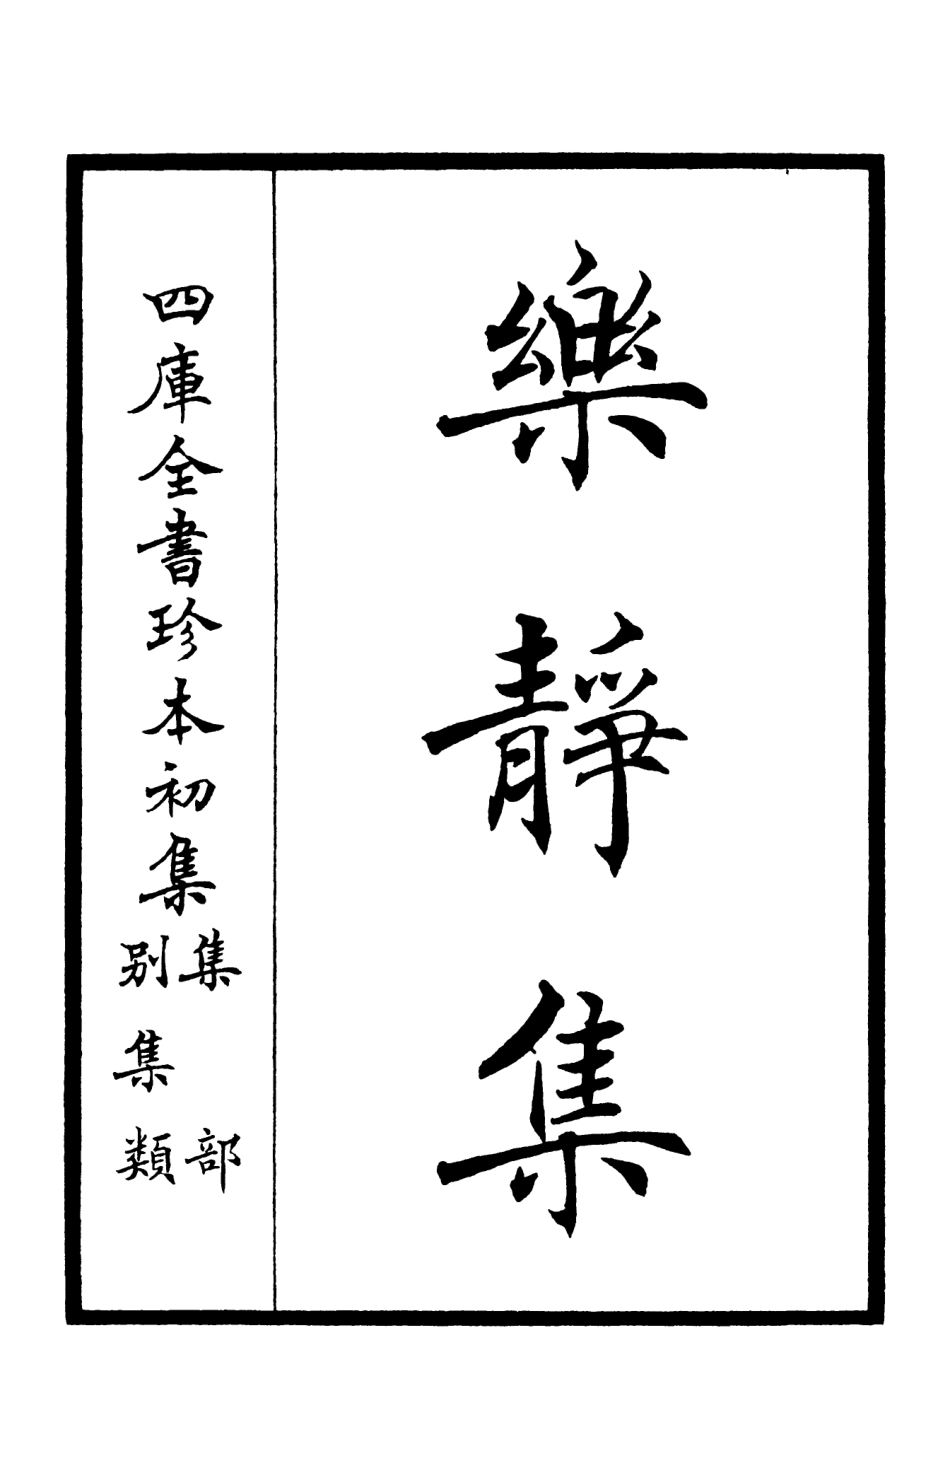 樂靜集
四庫全書珍本初集
集部
別集類